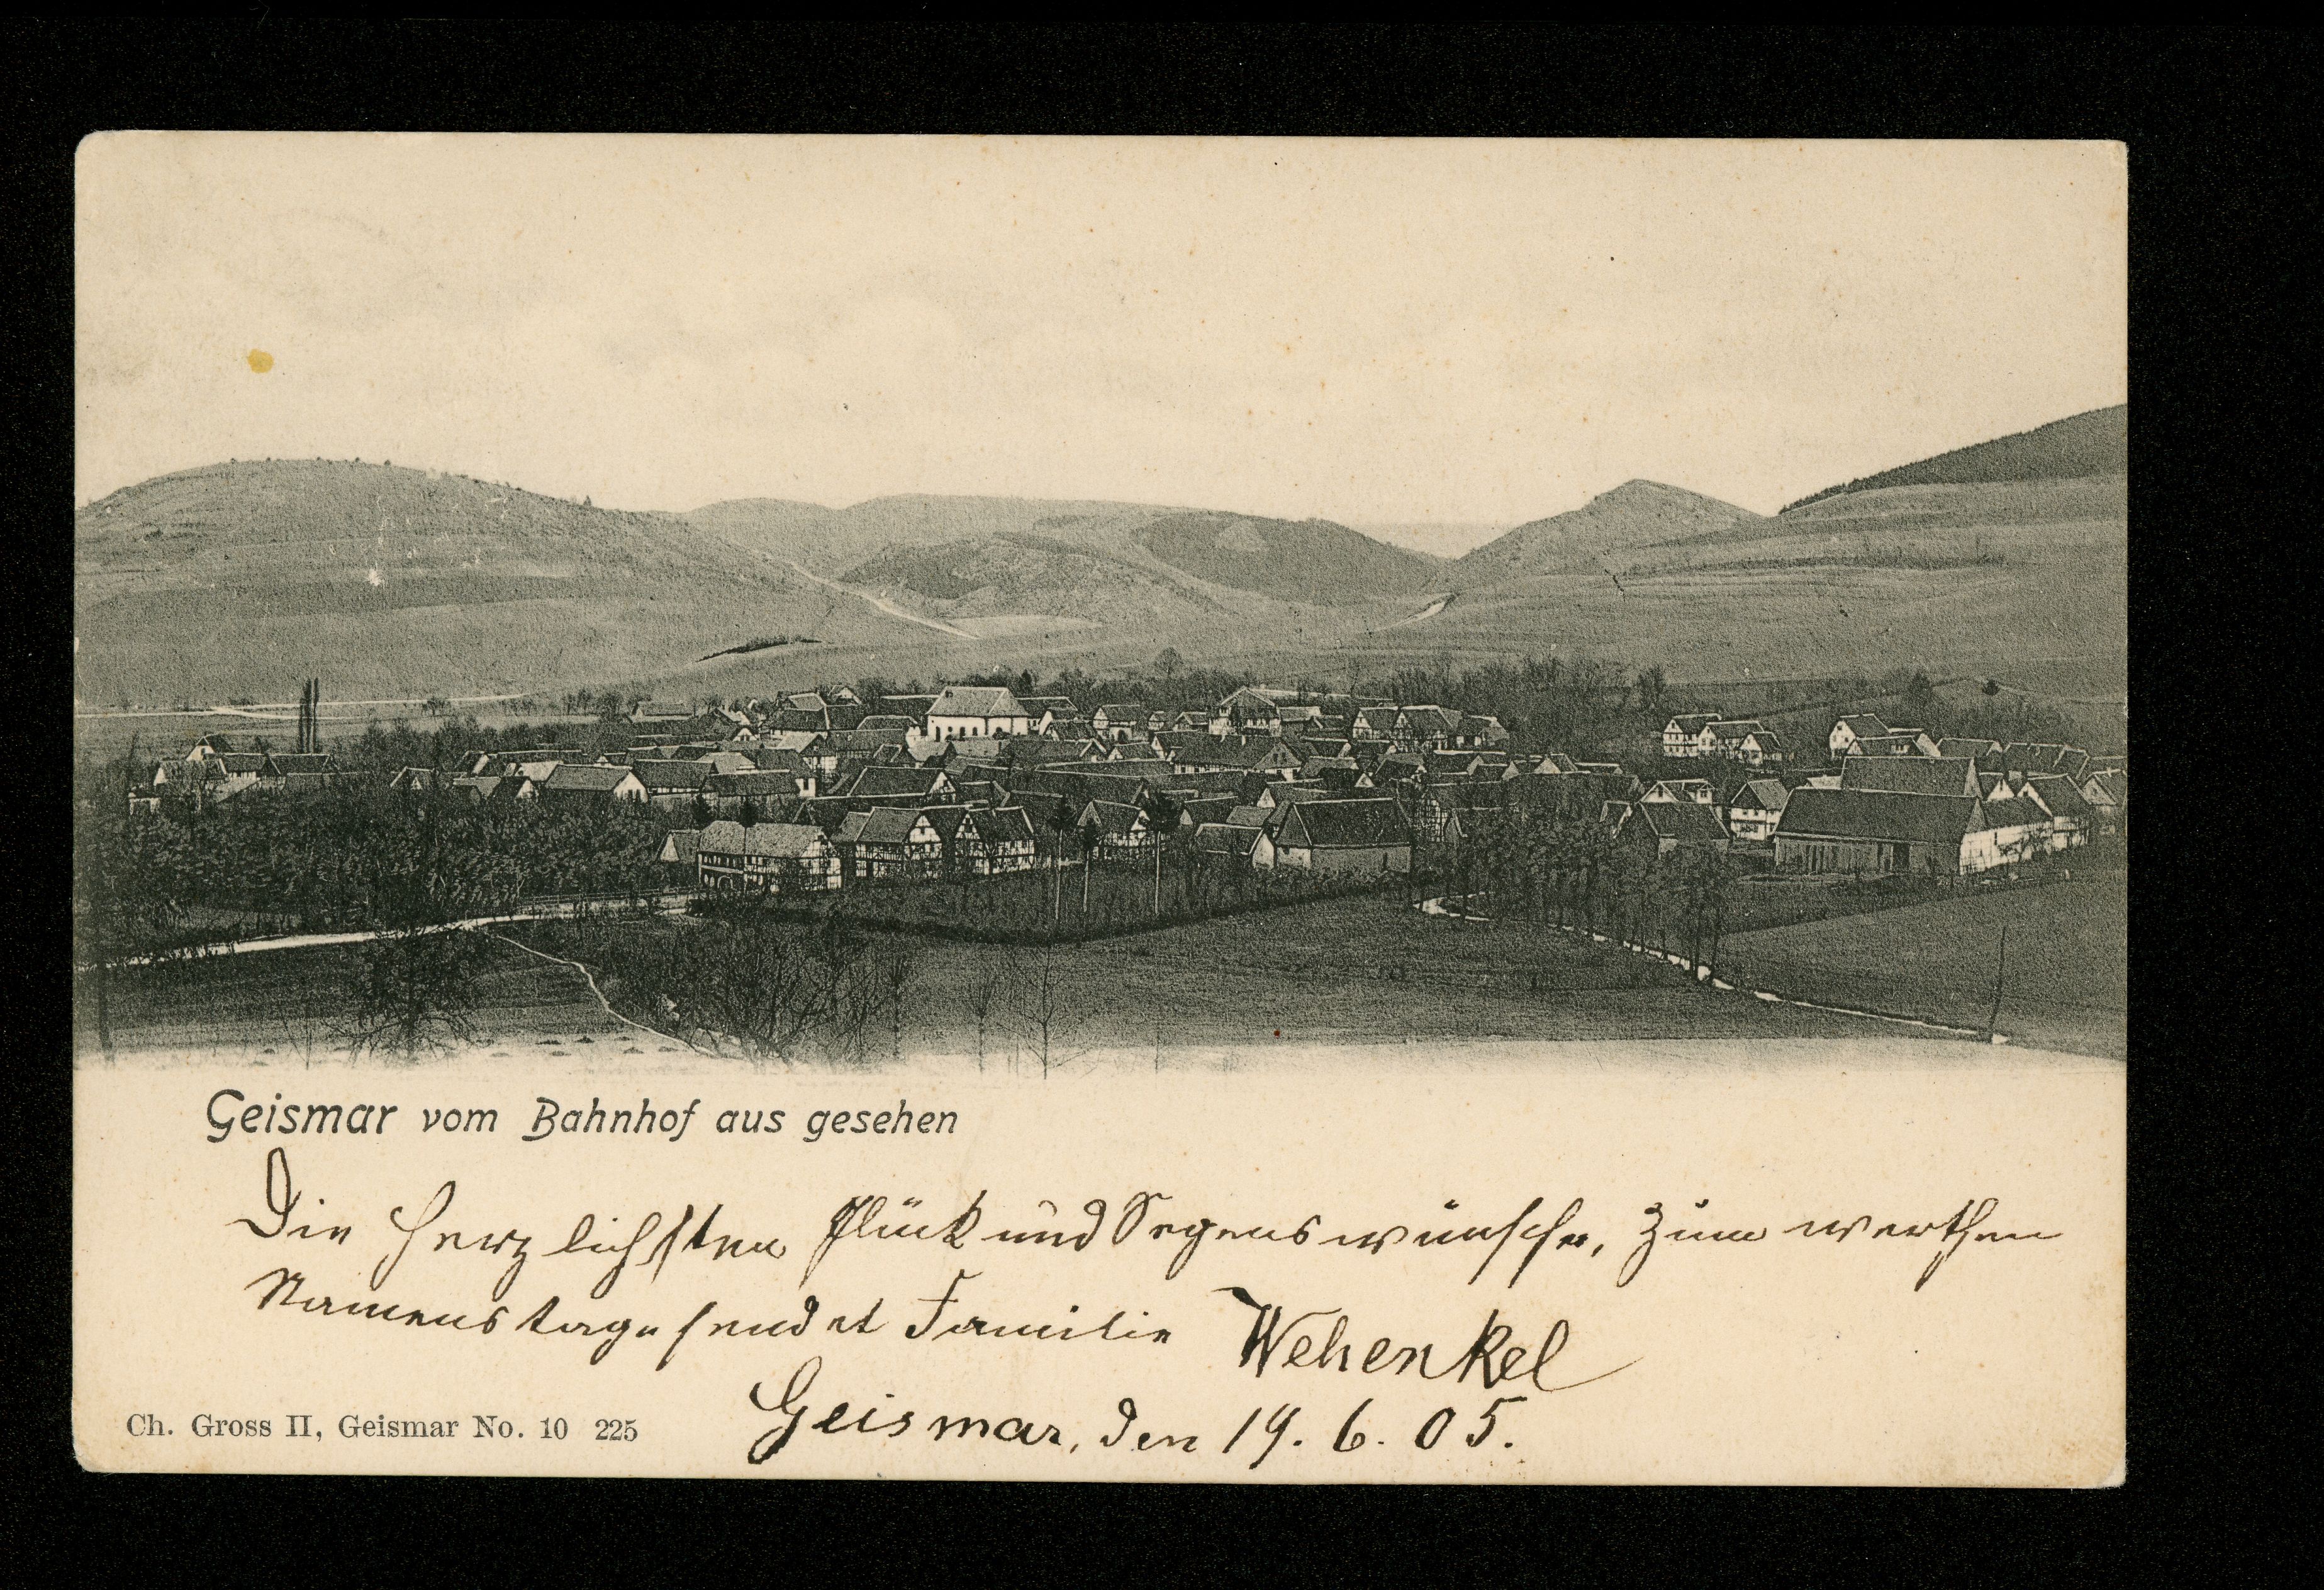 Geismar vom Bahnhof aus gesehen
Die herzlichsten Glück und Segenswünsche, zum werthen
Namenstage sendet Familie Wehenkel
Geismar, den 19. 6. 05.
Ch. Gross II, Geismar No. 10 225